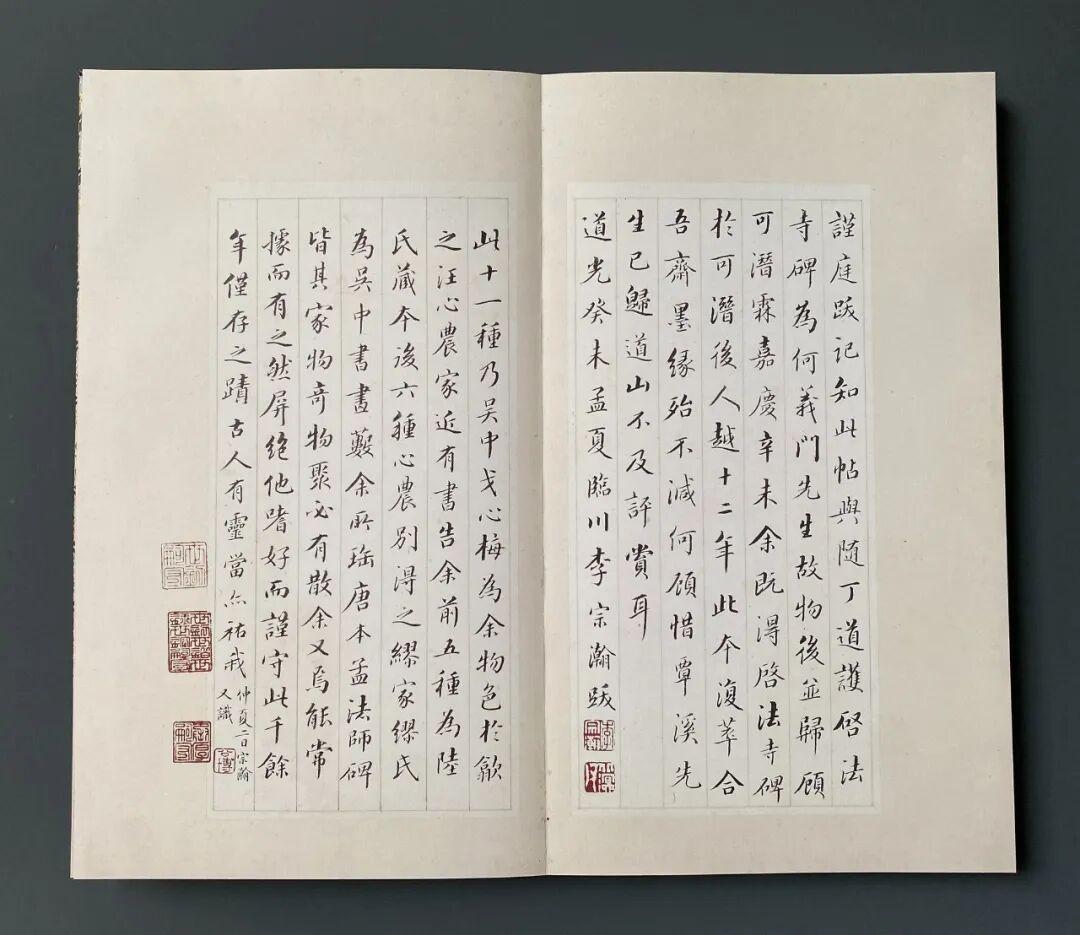 謹庭跋記知此帖與隨丁道護啓法
寺碑為何義門先生故物後並歸顧
可潛霖嘉慶辛未余既得啓法寺碑
於可潛後人越十二年此本復萃合
吾齋墨緣殆不減何顧惜覃溪先
生已歸道山不及評賞耳
道光癸未孟夏臨川李宗瀚跋
此十一種乃吳中戈心梅為余物色於歙
之汪心農家近有書告余前五種為陸
氏藏本後六種心農別得之繆家繆氏
為吳中書畫藪余所珤唐本孟法師碑
皆其家物奇物聚必有散余又烏能常
據而有之然屏絕他嗜好而謹守此千餘
年僅存之蹟古人有靈當亦祐我
仲夏二日宗瀚
又識